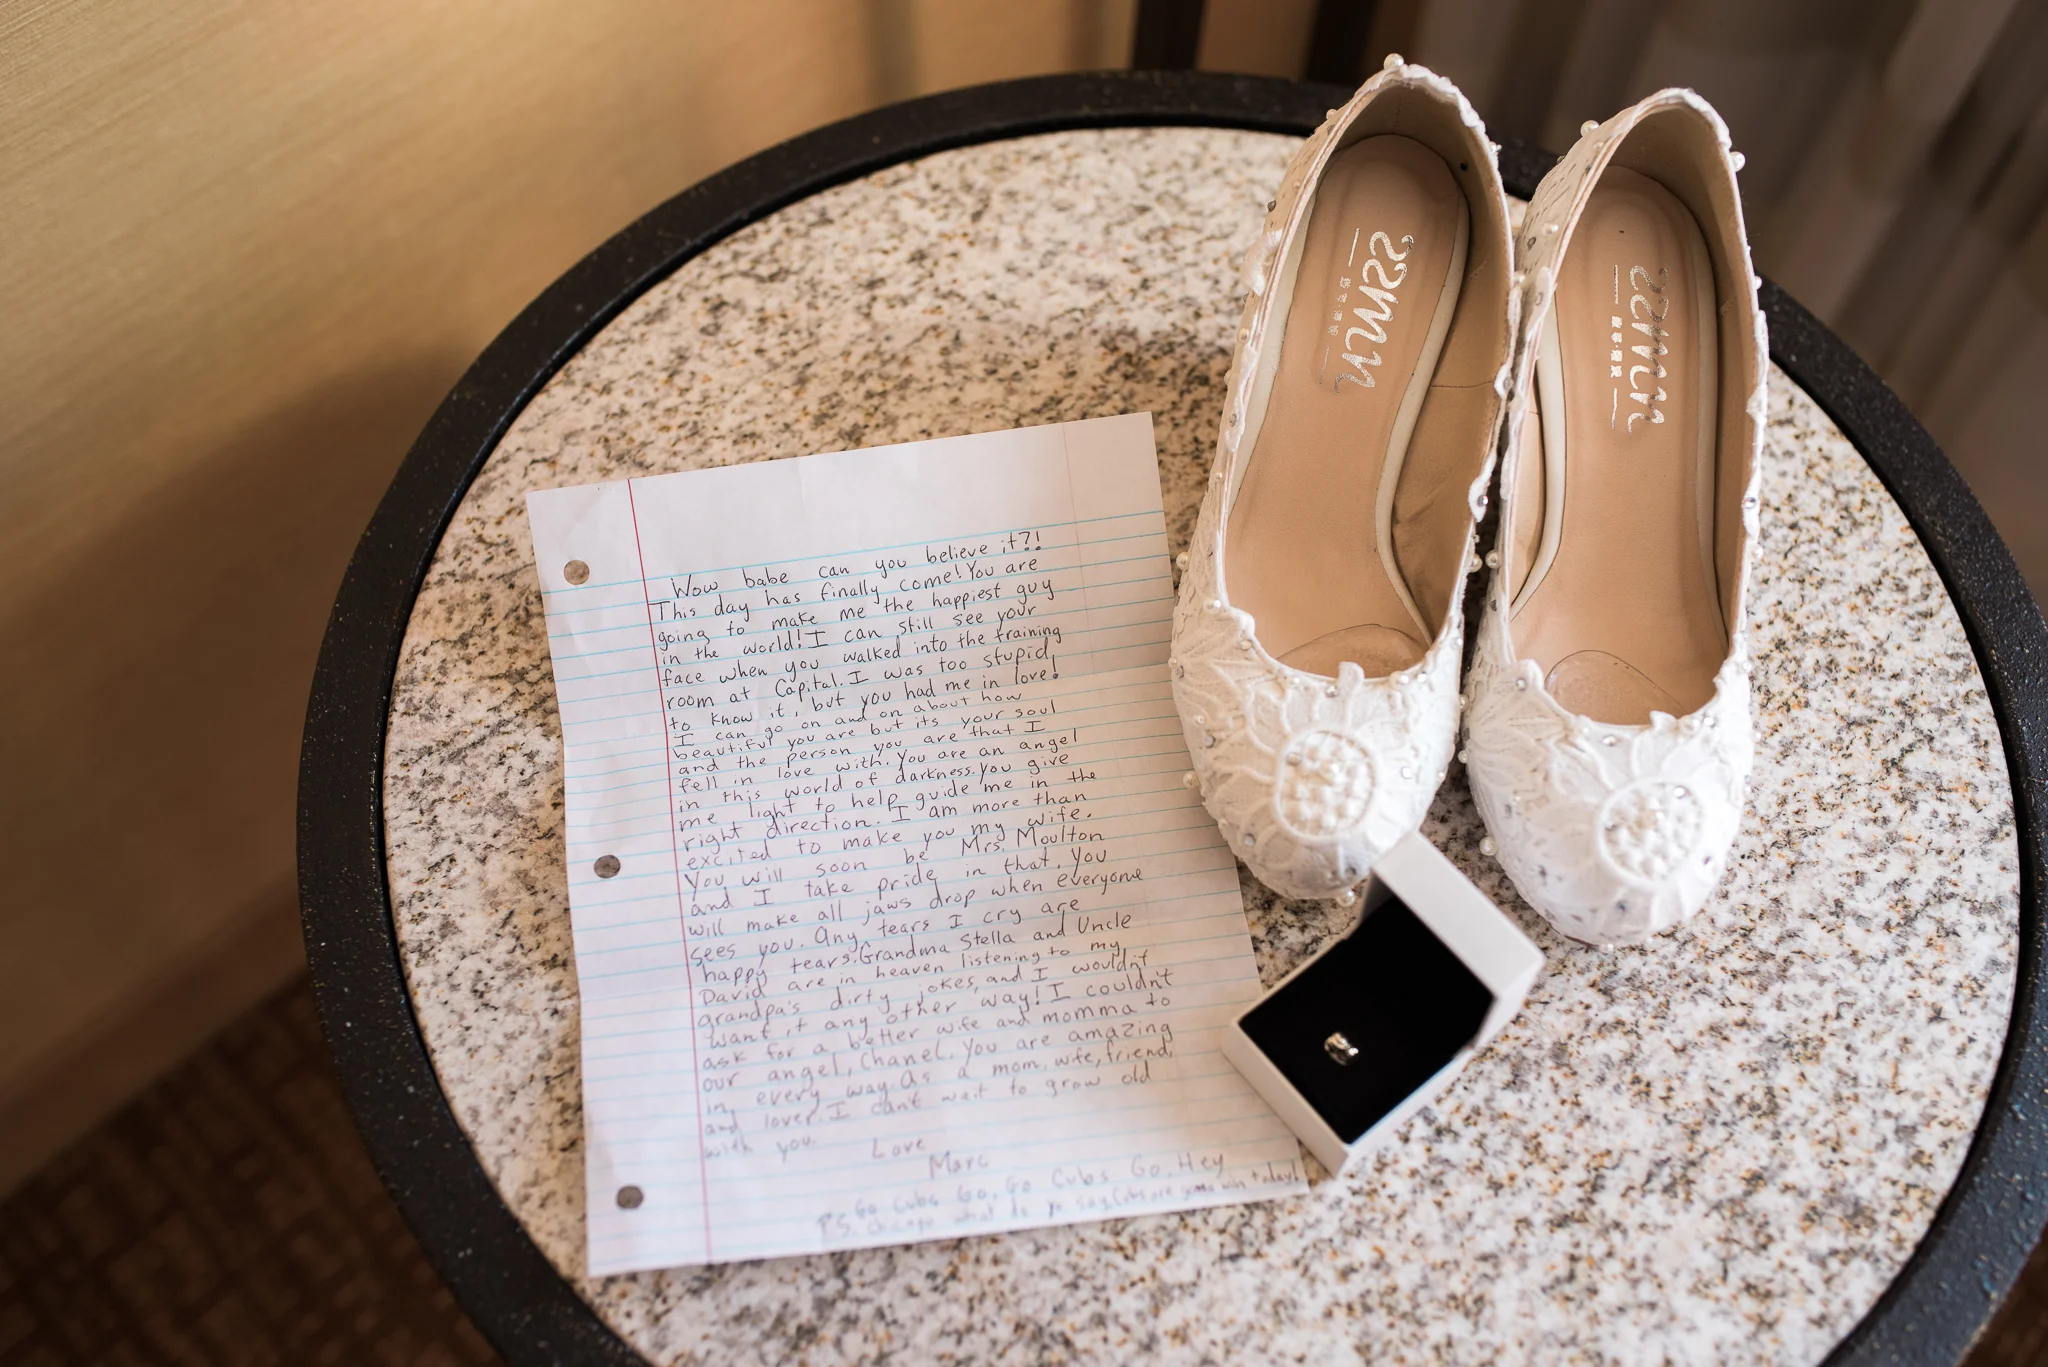 Wow babe can you believe it?!
This day has finally come! You are
going to make me the happiest guy
in the world! I can still see your
face when you walked into the training
room at Capital. I was too stupid
to know it, but you had me in love!
I can go on and on about how
beautiful you are but its your soul
and the person you are that I
fell in love with. You are an angel
in this world of darkness. You give
me light to help guide me in the
right direction. I am more than
excited to make you my wife.
You will soon be Mrs. Moulton
and I take pride in that. You
will make all jaws drop when everyone
sees you. Any tears I cry are
happy tears. Grandma Stella and Uncle
David are in heaven listening to my
grandpa's dirty jokes, and I wouldn't
want it any other way! I couldn't
ask for a better wife and momma to
our angel, Chanel. You are amazing
in every way. As a mom, wife, friend,
and lover. I can't wait to grow old
with you.
Love
Marc
P.S. Go Cubs Go, Go Cubs Go, Hey
Chicago what do ya say, Cubs are gonna win today!